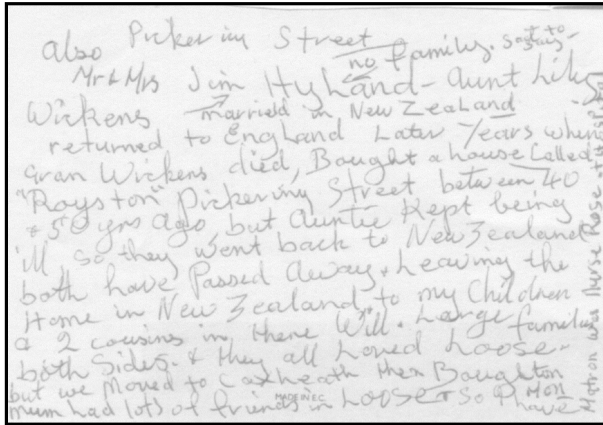 also Pickering Street no family.
Mr & Mrs Jim Hyland - Aunt Lily
Wickens married in New Zealand
returned to England Later years when
Gran Wickens died, Bought a house Called
"Royston" Pickering Street between 40
+ 50 yrs ago, but Auntie Kept being
ill so they went back to New Zealand
both have Passed Away + Leaving the
Home in New Zealand, to my Children
& 2 cousins in there Will. Large families
both Sides. & they all Loved Loose -
but we Moved to Coxheath then Boughton Mon
mum had lots of friends in Loose + so I have
MADE IN EC
Matron was Nurse Rose